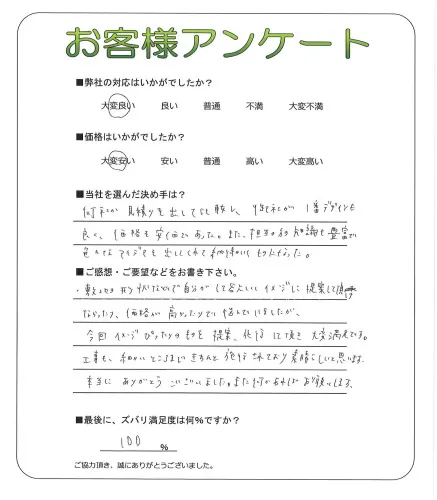 お客様アンケート
■弊社の対応はいかがでしたか?
大変良い 良い 普通 不満 大変不満
■価格はいかがでしたか?
大変安い 安い 普通 高い 大変高い
■当社を選んだ決め手は?
何社か見積りを出してもらい比較し、 が1番デザインも
良く、価格も安価であった。また、担当の方 知識も豊富で
色々なアイデアを出してくれて
■ご感想・ご要望などをお書き下さい。
・敷地の形 自分がしてほしいイメージに提案して頂け
なかったり、価格が高かったりで悩んでいましたが、
今回イメージぴったりのものを提案、施行して頂き大変満足です。
工事も、細かいところまできちんと施行されており素晴らしいと思います。
本当にありがとうございました。また何かあればお願いします。
■最後に、ズバリ満足度は何%ですか?
100 %
ご協力頂き、誠にありがとうございました。